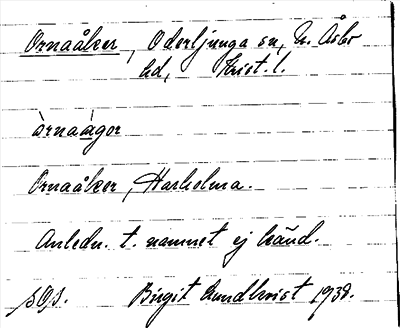 Ornaåker, Oderljunga sn, N. Åsbo
hd, Krist. l.
òrnaågor
Ornaåker, Harholma.
Anledn. t. namnet ej känd.
sOs. Birgit Lundkvist 1938.